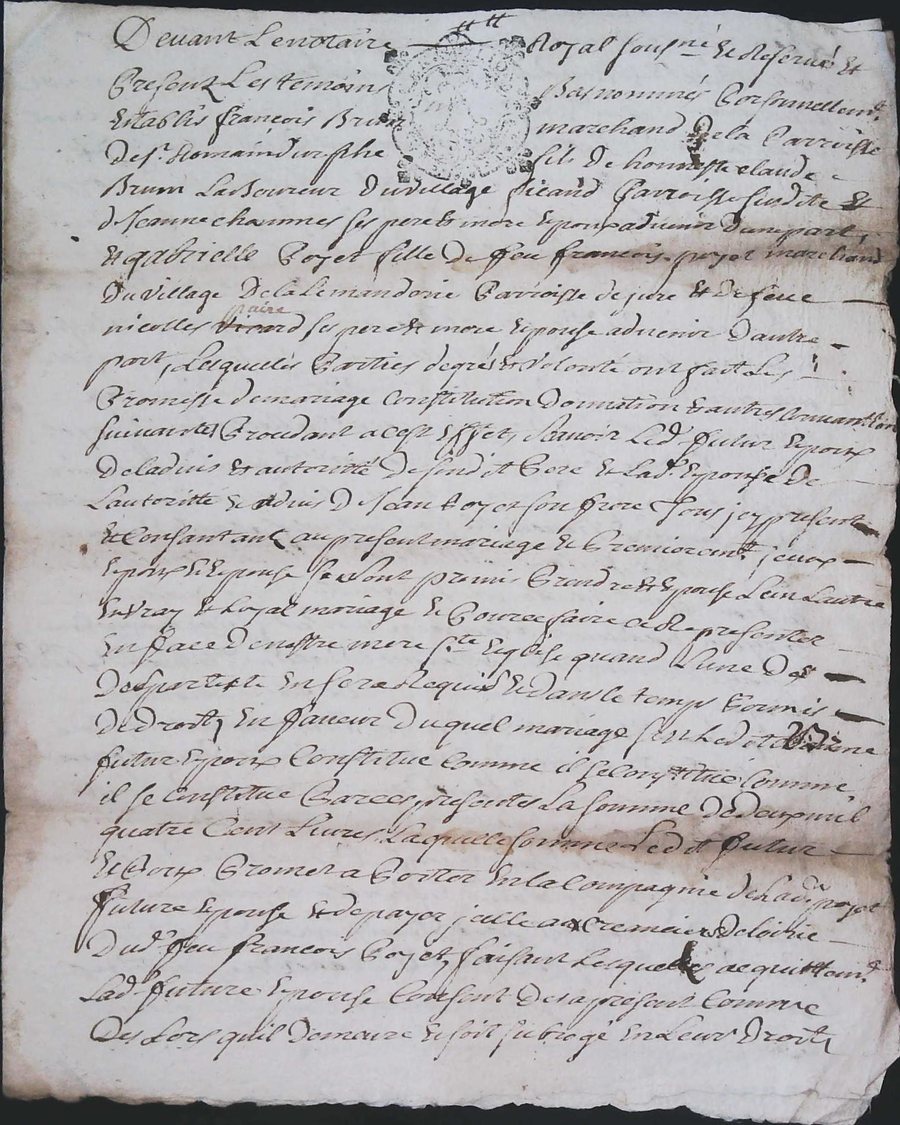 Devant Le notaire Royal sousné Et Reservé Et
Present Les temoins Bas nommés Personnellemt
Establis françois Brun marchand de la Parroisse
de st Romain d'urphe fils de honneste claude
Brun LaBoureur du village Picaud Parroisse susdite Et
d'Jeanne chammes ses pere & mere Epoux advenir d'une part,
Et gabrielle Poyet fille de feu francois poyet marchand
du village De la Lemandorie Parroisse de jure Et de feue
nicolles paire ses pere et mere Epouse advenir d'autre
part, Lesquelles Parties de gré & volonté ont fait Les
Promesse de mariage Constitution Donnation & autres Convantion
suivantes Procedant a cest Effet, Scavoir Led. futur Epoux
De ladvis et autoritté de sondit Pere Et Lad. Epouse de
Lautoritte & advis D Jean Poyet son frere Tous icy present
Et Consantant au present mariage Et Premierement jceux
Epoux & Epouse se sont promis Prendre et Epouse L'un Lautre
En vray Et Loyal mariage Et Pource faire ce Representer
En face De nostre mere ste Eglise quand L'une Des
Des parties En sera Requise Et dans le temps Permis
De droit, En faveur Duquel mariage s'est Ledit
futur Epoux Constitué Comme il se Constitue Comme
il se Constitue Par ces presentes La somme De deux mil
quatre Cent Livres, Laquelle somme Ledit futur
Epoux Promet aPorter En la Compagnie de Lad. poyet
future Epouse Et de payer jcelle aux Creanciers de
Dud. feu francois Poyet, faisant Lesquelles acquittemt
Lad. future Epouse Consent des a present Comme
Des Lors quil Demeure & soit subrogé En Leurs Droits